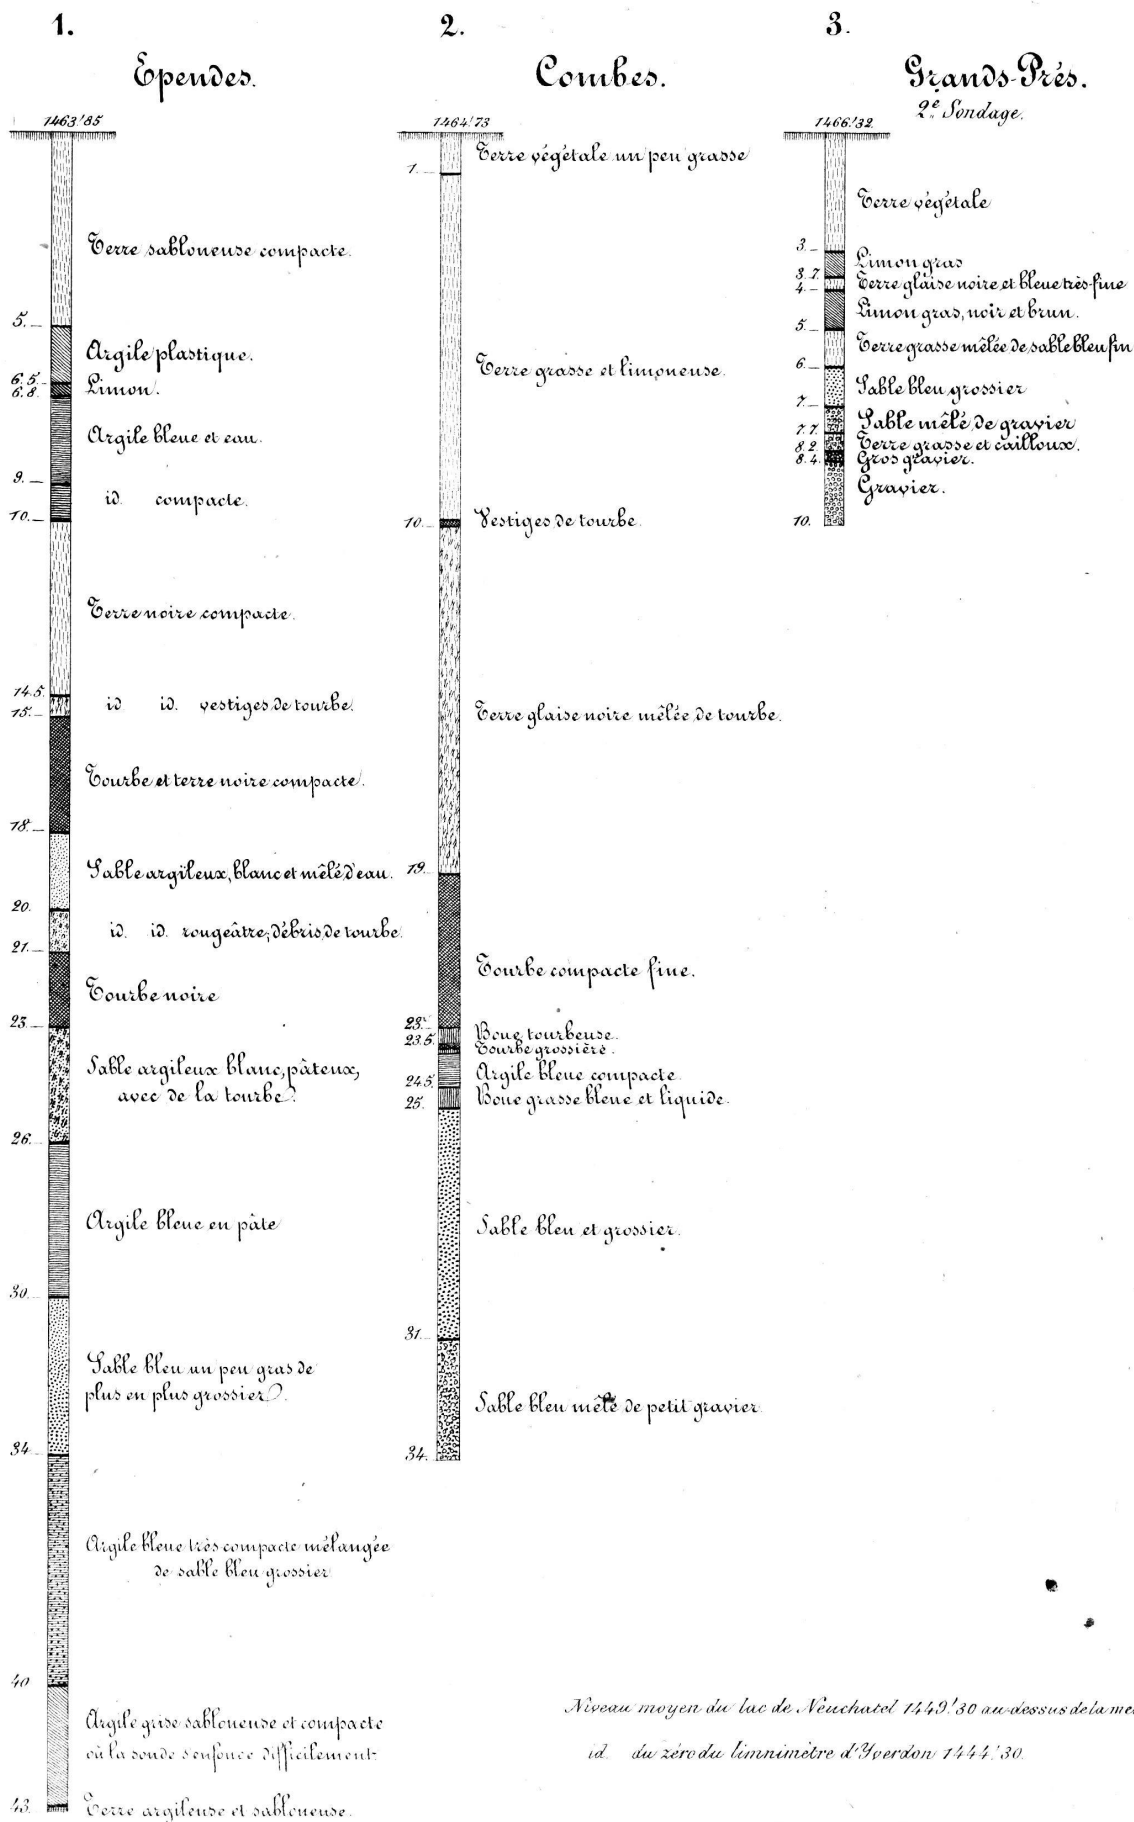 1.
Ependes.
1463!85
Terre sabloneuse compacte.
5.
Argile plastique.
6.5.
Limon.
6.8.
Argile bleue et eau.
9.
id. compacte.
10.
Terre noire compacte.
14.5.
id id. vestiges de tourbe.
15.
Tourbe et terre noire compacte.
18.
Sable argileux, blanc et mêlé d'eau.
20.
id. id. rougeâtre, débris de tourbe.
21.
Tourbe noire
23.
Sable argileux blanc, pâteux,
avec de la tourbe.
26.
Argile bleue en pâte
30.
Sable bleu un peu gras de
plus en plus grossier.
34.
Argile bleue très compacte mélangée
de sable bleu grossier
40
Argile grise sabloneuse et compacte
où la sonde s'enfonce difficilement
43.
Terre argileuse et sabloneuse.
2.
Combes.
1464!73
Terre végétale un peu grasse
1.
Terre grasse et limoneuse.
10.
Vestiges de tourbe.
Terre glaise noire mêlée de tourbe.
19.
Tourbe compacte fine.
23.
Boue tourbeuse.
23.5.
Tourbe grossière.
Argile bleue compacte
24.5.
Boue grasse bleue et liquide.
25.
Sable bleu et grossier.
31.
Sable bleu mêlé de petit gravier.
34.
3.
Grands-Prés.
2e Sondage.
1466!32
Terre végétale
3.
Limon gras
3.7.
Terre glaise noire et bleue très-fine
4.
Limon gras, noir et brun.
5.
Terre grasse mêlée de sable bleu fin
6.
Sable bleu grossier
7.
Sable mêlé de gravier
7.7.
Terre grasse et cailloux.
8.2.
Gros gravier.
8.4.
Gravier.
10.
Niveau moyen du lac de Neuchatel 1449!30 au-dessus de la me
id. du zéro du limnimètre d'Yverdon 1444!30.